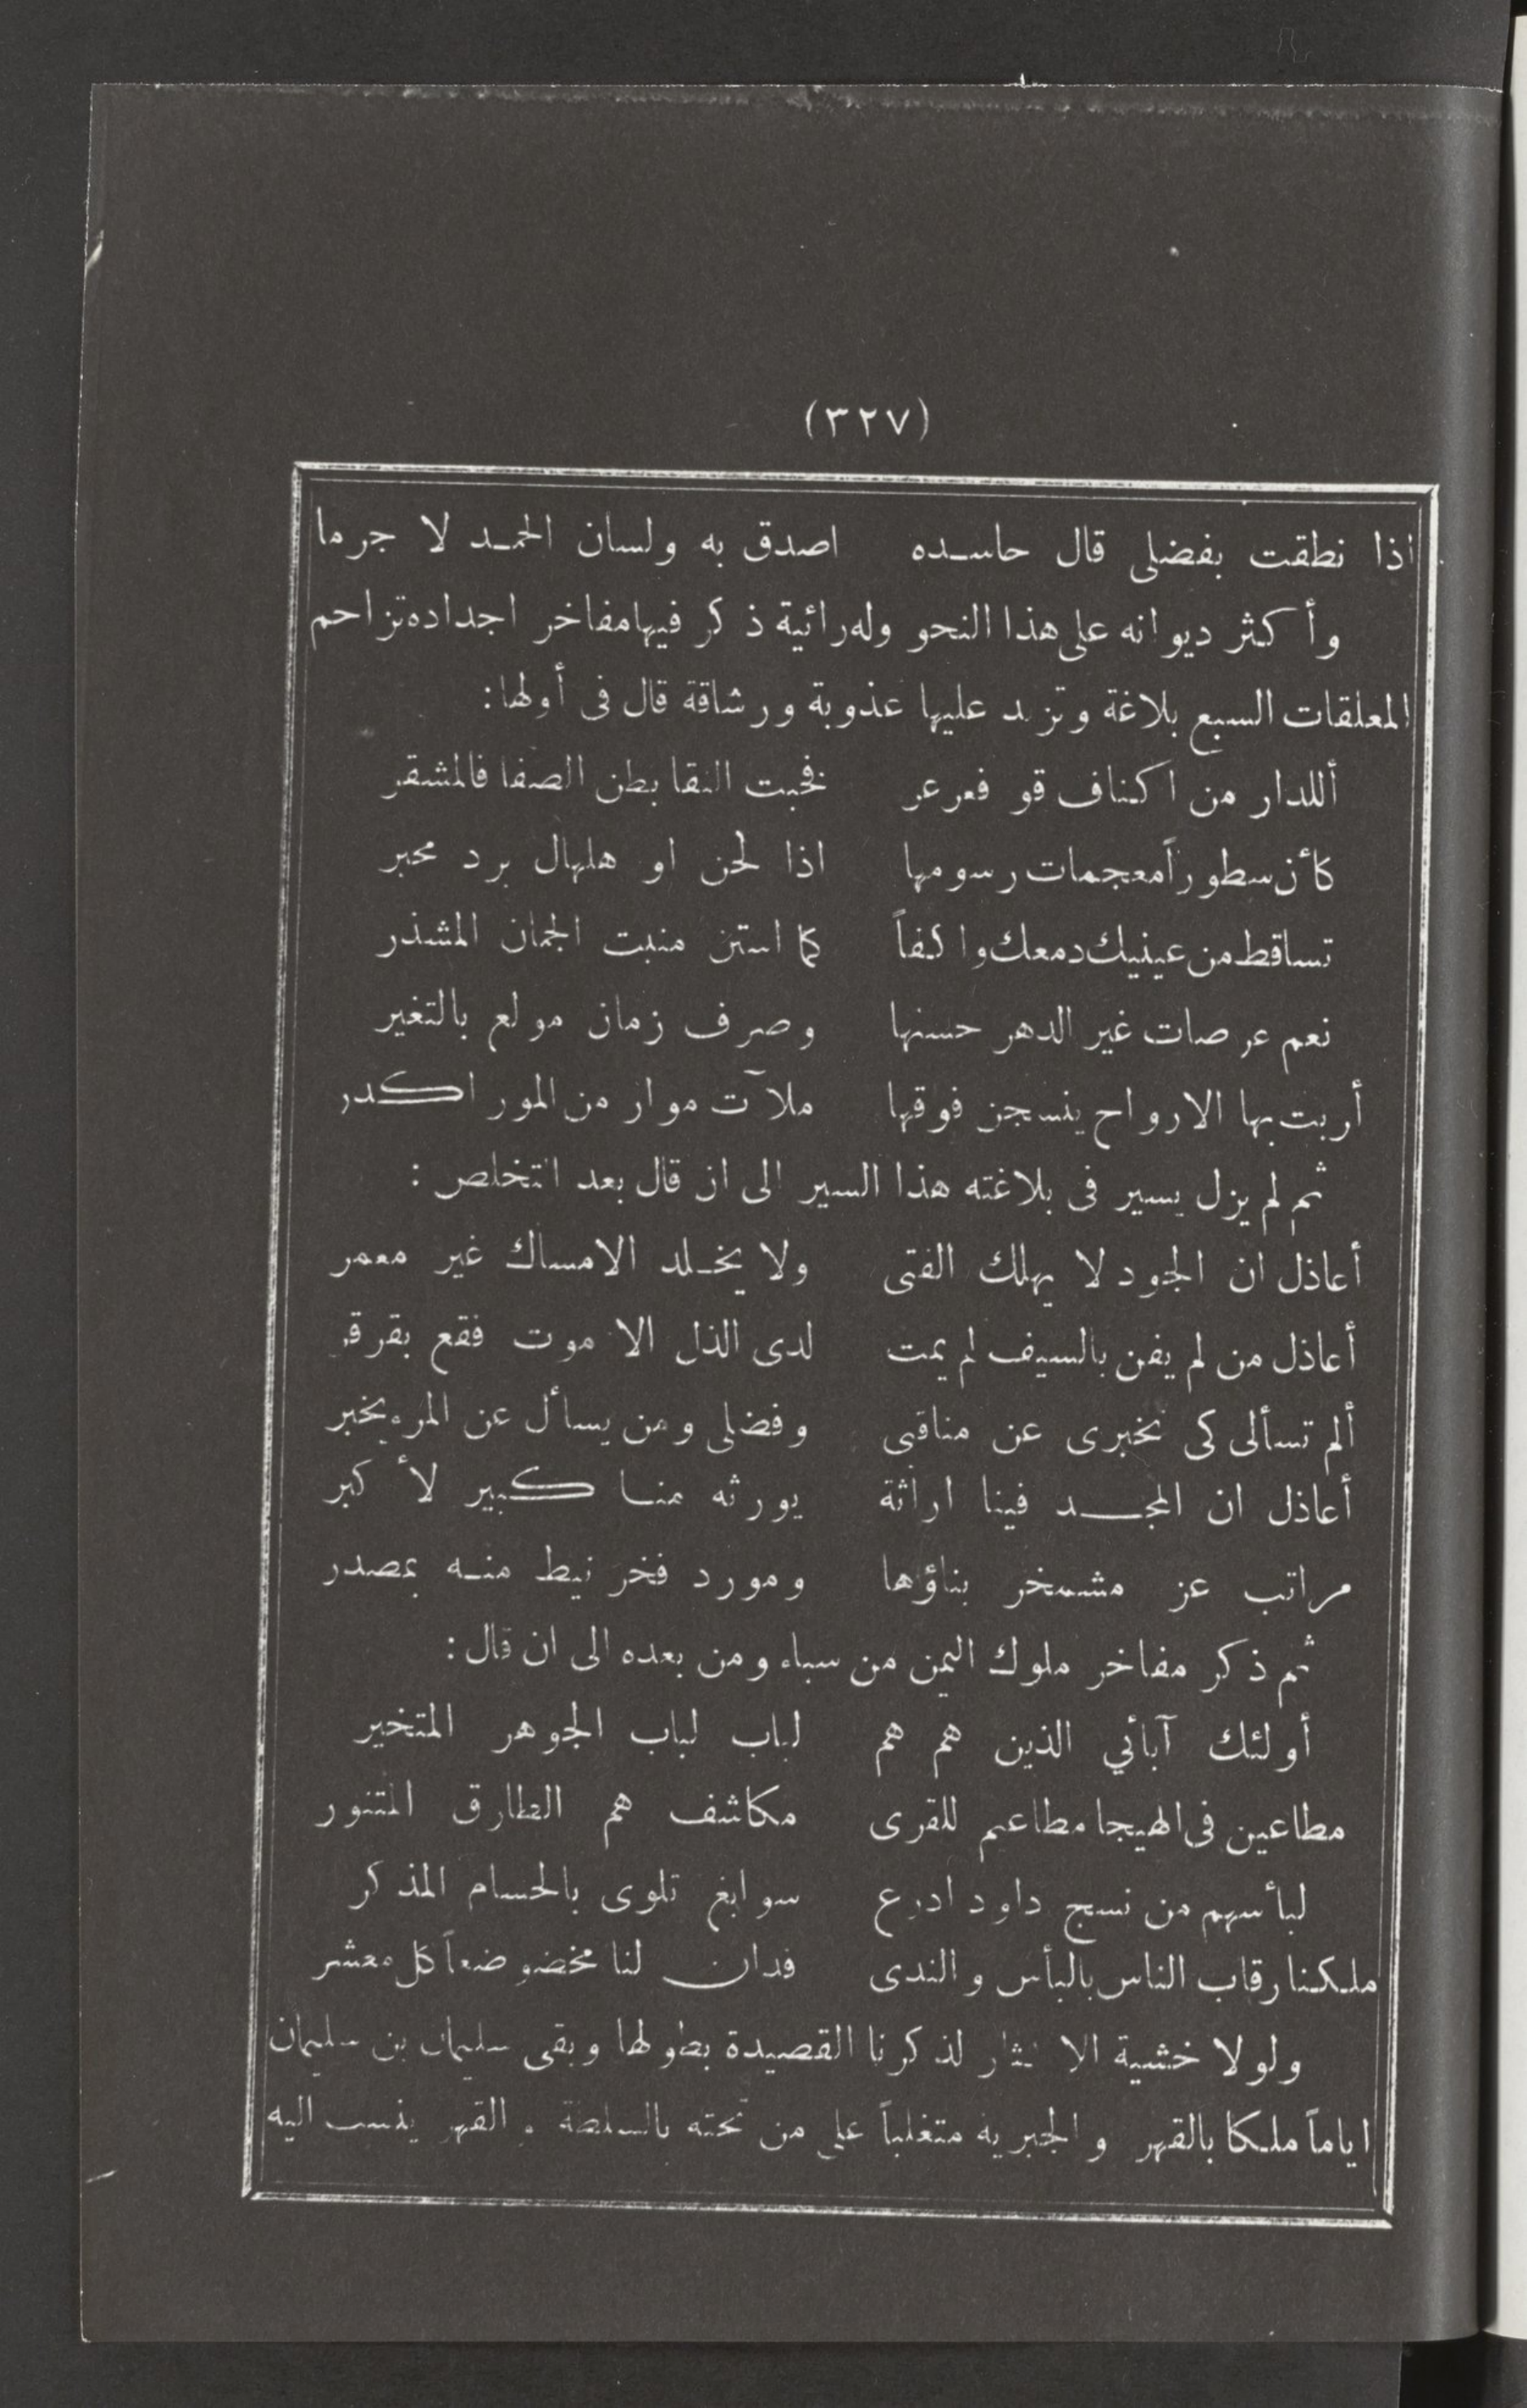 (٣٢٧)
اذا نطقت بفضلى قال حاسده اصدق به ولسان الحمد لا جرما
وأكثر ديوانه على هذا النحو وله رائية ذكر فيها مفاخر اجداده تزاحم
المعلقات السبع بلاغة وتزيد عليها عذوبة ورشاقة قال فى أولها:
أللدار من اكناف قو فعرعر فخبت النقا بطن الصفا فالمشقر
كأن سطوراً معجمات رسومها اذا لحن او هلهال برد محبر
تساقط من عينيك دمعك واكفاً كما استن منبت الجمان المشذر
نعم عرصات غير الدهر حسنها وصرف زمان مولع بالتغير
أربت بها الارواح ينسجن فوقها ملآت موار من المور اكدر
ثم لم يزل يسير فى بلاغته هذا السير الى ان قال بعد التخلص :
أعاذل ان الجود لا يهلك الفتى ولا يخلد الامساك غير معمر
أعاذل من لم يفن بالسيف لم يمت لدى الذل الا موت فقع بقرقر
ألم تسألى كى تخبرى عن مناقبى وفضلى ومن يسأل عن المرء يخبر
أعاذل ان المجد فينا اراثة يورثه منا كبير لأكبر
مراتب عز مشمخر بناؤها ومورد فخر نيط منه بمصدر
ثم ذكر مفاخر ملوك اليمن من سباء ومن بعده الى ان قال :
أولئك آبائي الذين هم هم لباب لباب الجوهر المتخير
مطاعين فى الهيجا مطاعيم للقرى مكاشف هم الطارق المتنور
لبأسهم من نسج داود ادرع سوابغ تلوى بالحسام المذكر
ملكنا رقاب الناس بالبأس والندى فدان لنا مخضوضعاً كل معشر
ولولا خشية الاكثار لذكرنا القصيدة بطولها وبقى سليمان بن سليمان
اياماً ملكا بالقهر والجبرية متغلباً على من تحته بالسلطة والقهر ينسب اليه